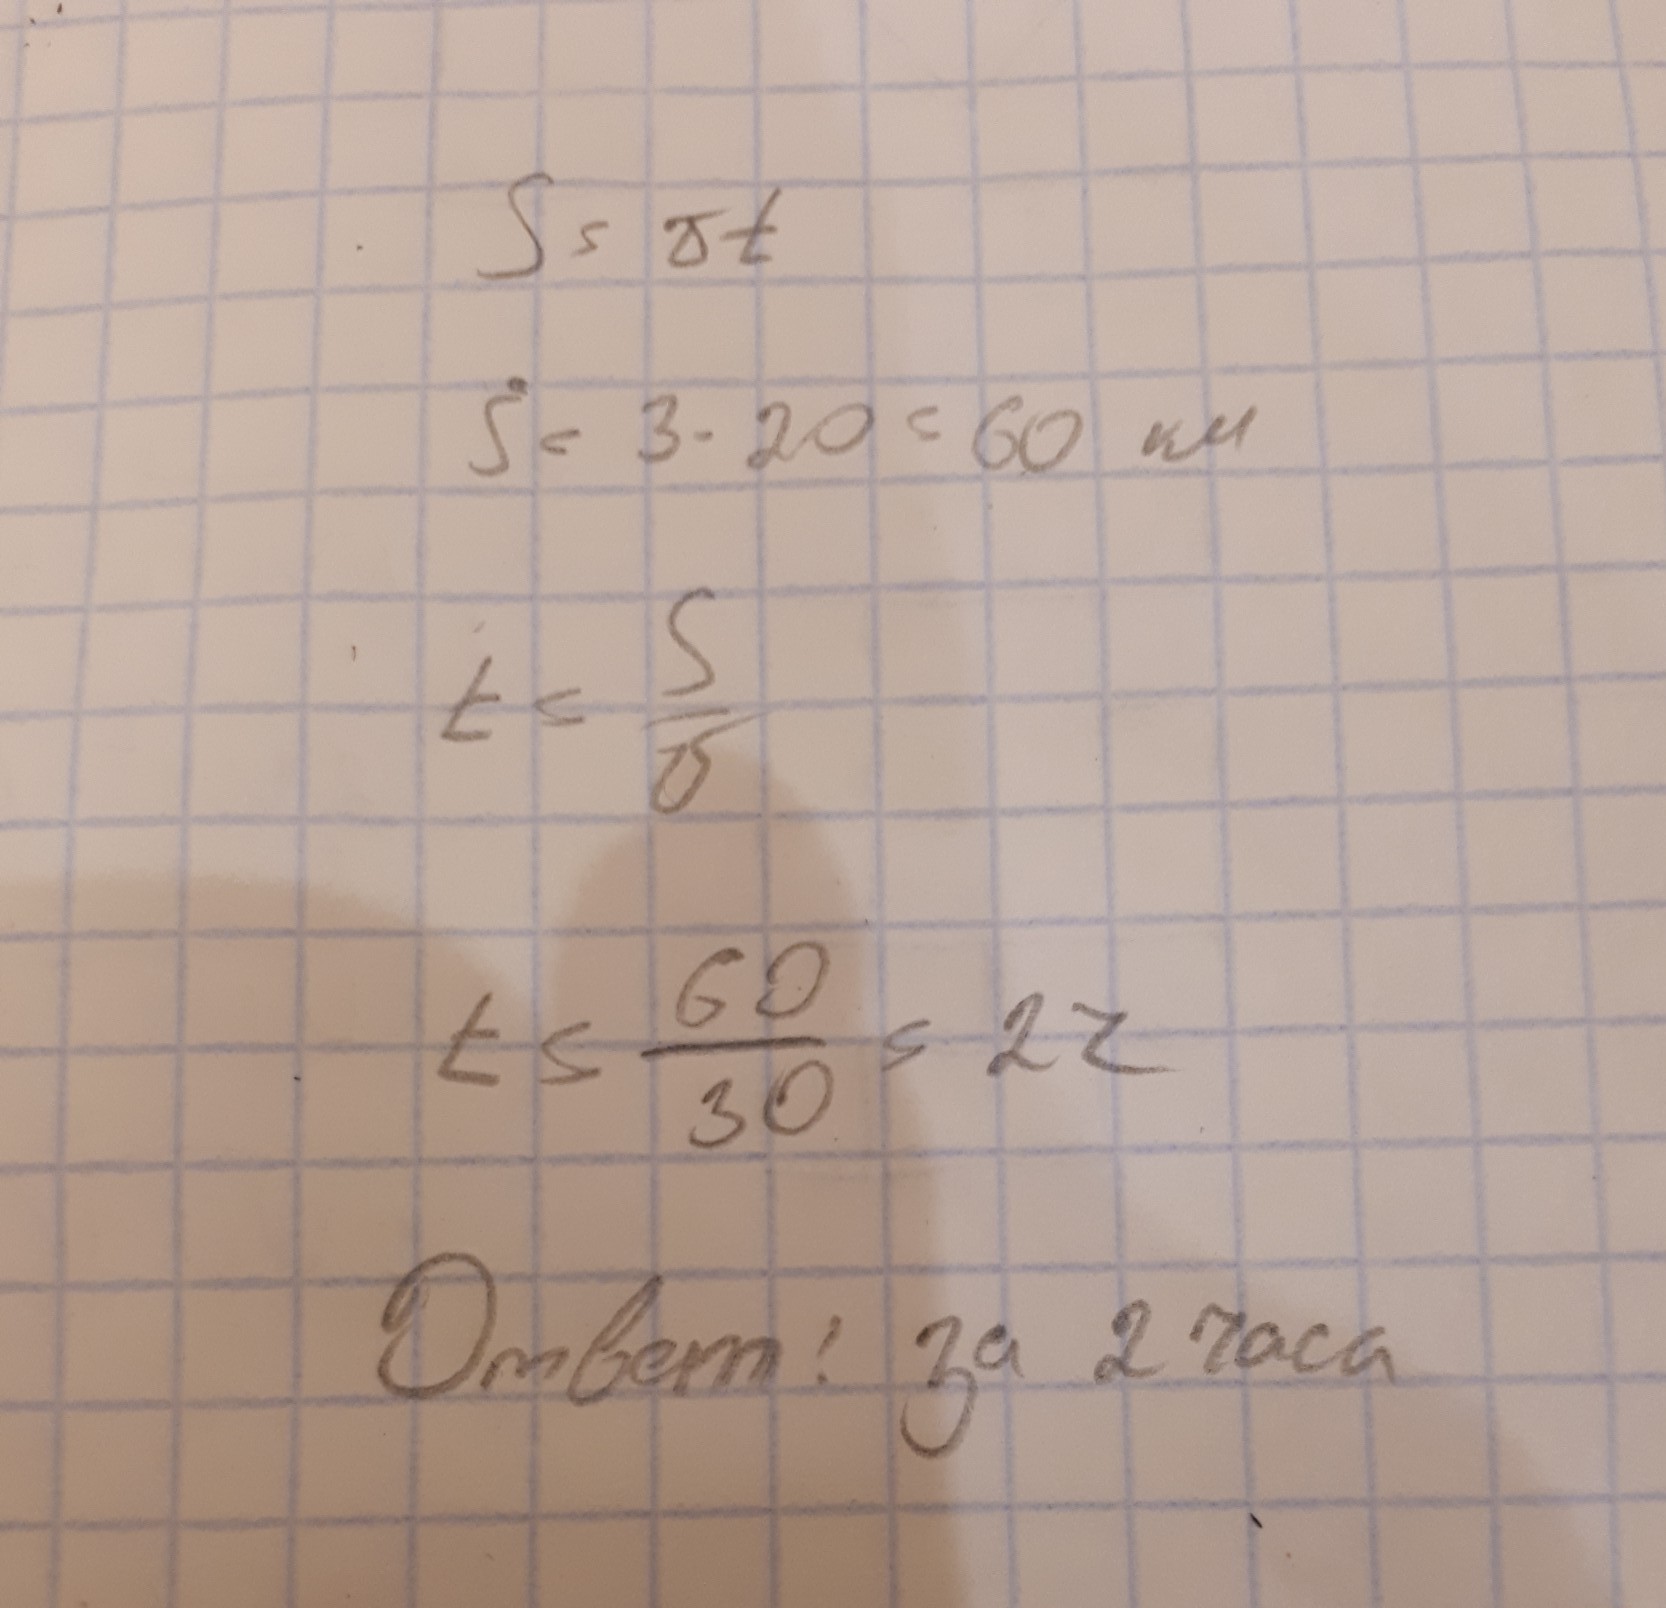 S = vt
S = 3 · 20 = 60 км
t = S/v
t = 60/30 = 2ч
Ответ: за 2 часа